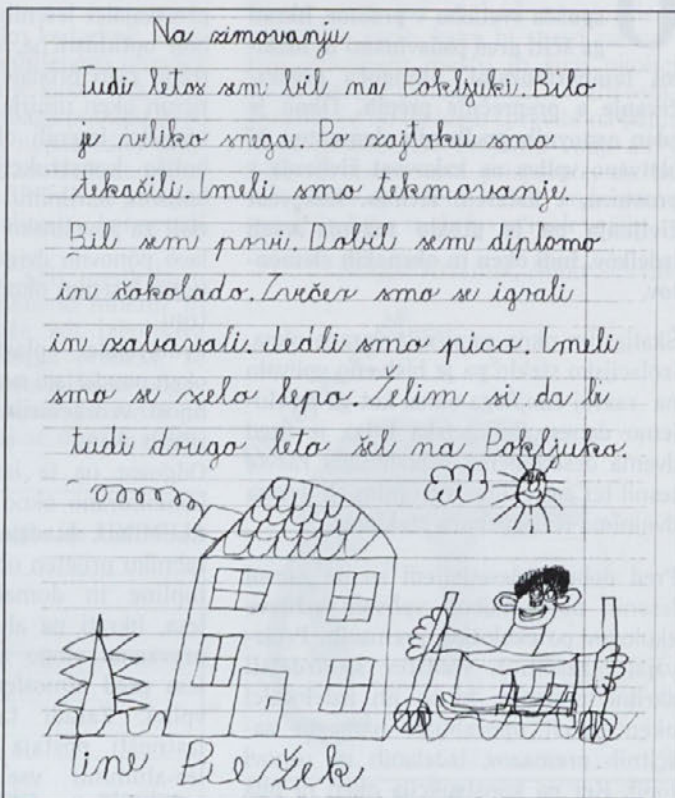 Na zimovanju
Tudi letos sem bil na Pokljuki. Bilo
je veliko snega. Po zajtrku smo
tekačili. Imeli smo tekmovanje.
Bil sem prvi. Dobil sem diplomo
in čokolado. Zvečer smo se igrali
in zabavali. Jedli smo pico. Imeli
smo se zelo lepo. Želim si da bi
tudi drugo leto šel na Pokljuko.
Tine